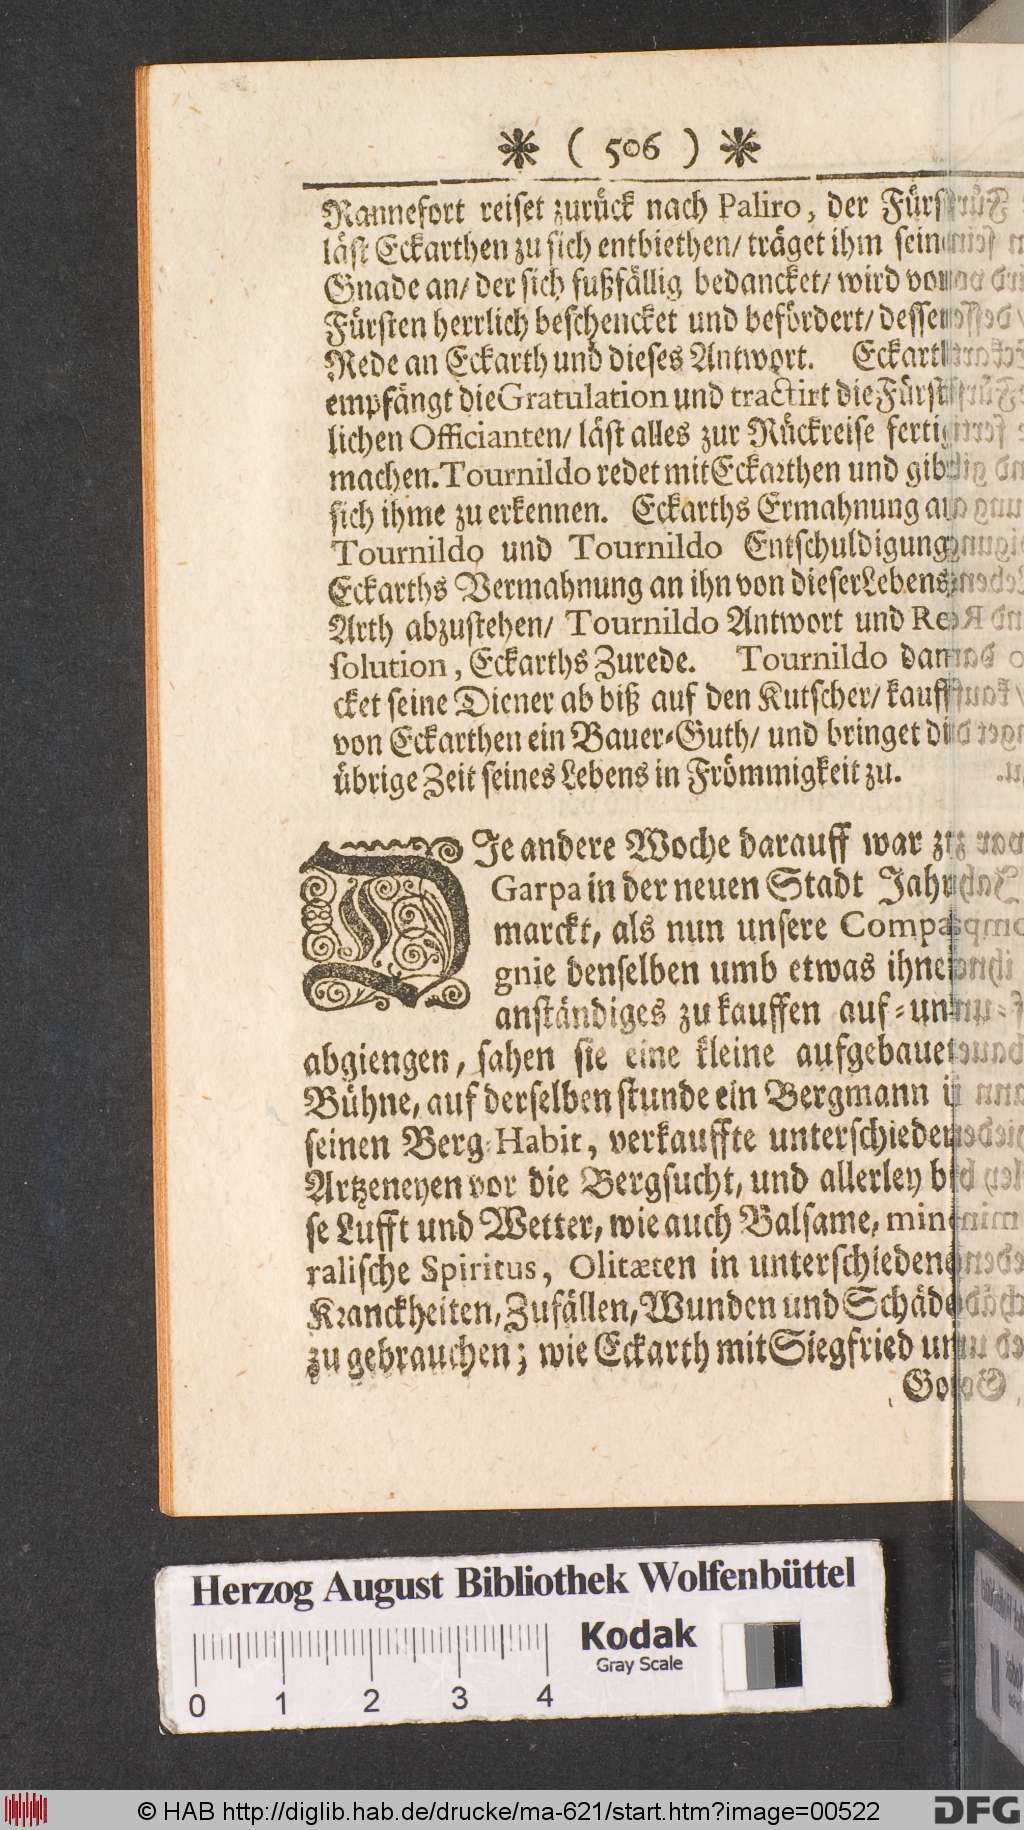 ( 506 )
Rannefort reiset zurück nach Paliro, der Fürst
läst Eckarthen zu sich entbiethen/ träget ihm seine
Gnade an/ der sich fußfällig bedancket/ wird vom
Fürsten herrlich beschencket und befördert/ dessen
Rede an Eckarth und dieses Antwort. Eckarth
empfängt die Gratulation und tractirt die Fürst-
lichen Officianten/ läst alles zur Rückreise fertig
machen. Tournildo redet mit Eckarthen und gibt
sich ihme zu erkennen. Eckarths Ermahnung an
Tournildo und Tournildo Entschuldigung,
Eckarths Vermahnung an ihn von dieser Lebens-
Arth abzustehen/ Tournildo Antwort und Re-
solution, Eckarths Zurede. Tournildo dan-
cket seine Diener ab biß auf den Kutscher/ kaufft
von Eckarthen ein Bauer-Guth/ und bringet die
übrige Zeit seines Lebens in Frömmigkeit zu.
DIe andere Woche darauff war zu
Garpa in der neuen Stadt Jahr-
marckt, als nun unsere Compa-
gnie denselben umb etwas ihnen
anständiges zu kauffen auf-und
abgiengen, sahen sie eine kleine aufgebauete
Bühne, auf derselben stunde ein Bergmann in
seinen Berg-Habit, verkauffte unterschiedene
Artzeneyen vor die Bergsucht, und allerley bö-
se Lufft und Wetter, wie auch Balsame, mine-
ralische Spiritus, Olitæten in unterschiedenen
Kranckheiten, Zufällen, Wunden und Schäden
zu gebrauchen; wie Eckarth mit Siegfried und
Herzog August Bibliothek Wolfenbüttel
Kodak
Gray Scale
0 1 2 3 4
© HAB http://diglib.hab.de/drucke/ma-621/start.htm?image=00522
DFG